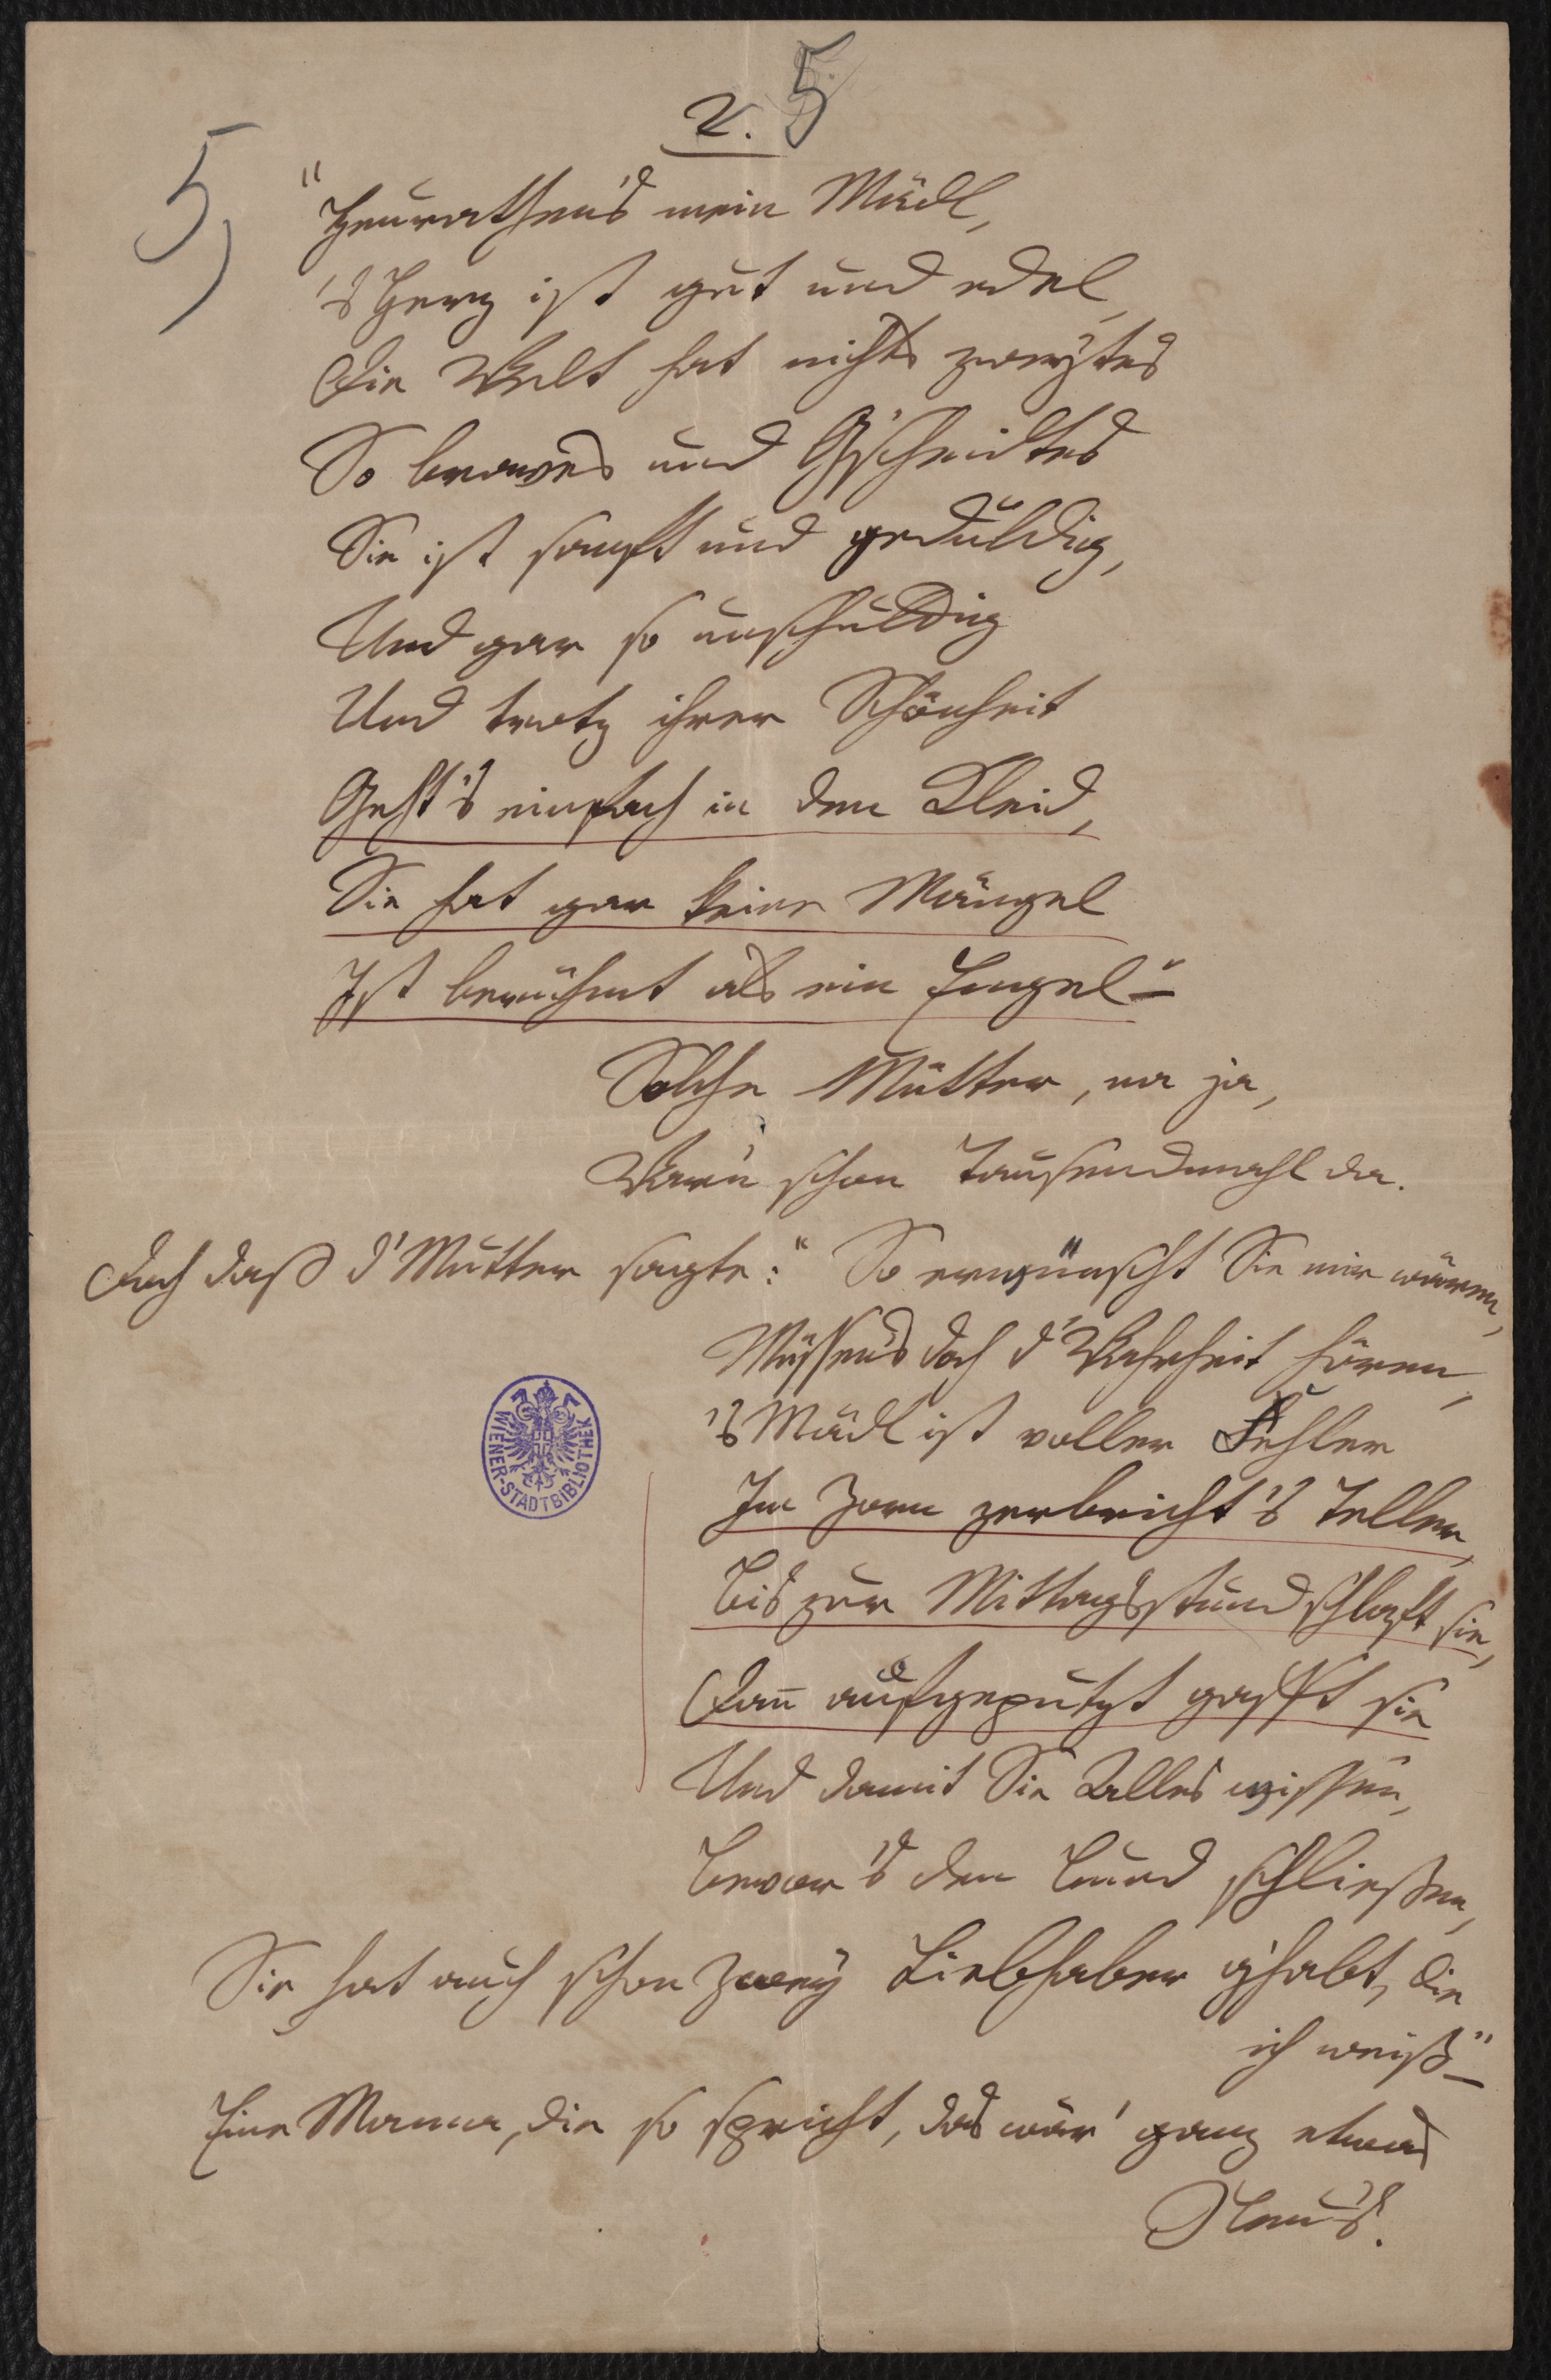 2. 5
5,
"Heurathen's mein Mädl,
's Herz ist gut und edel,
Die Welt hat nichts zweytes
So braves und G'scheidtes
Sie ist sanft und geduldig,
Und gar so unschuldig
Und trotz ihrer Schönheit
Geht's einfach in den Kleid,
Sie hat gar keine Mängel
Ist berühmt als ein Engel" –
Solche Mütter, na ja,
War'n schon tausendmahl da.
Doch daß d'Mutter sagte: "So erwünscht Sie mir wären,
Müssen's doch d'Wahrheit hören,
's Mädl ist voller Fehler
Im Zorn zerbricht's Teller,
Bis zur Mittagsstund schlaft sie,
Dann aufgeputzt gafft sie
Und damit Sie Alles wissen,
Bevor's den Bund schließen,
Sie hat auch schon zwey Liebhaber g'habt, die
ich weiß" –
Eine Mama, die so spricht, das wär' ganz etwas
Neu's.
WIENER-STADTBIBLIOTHEK